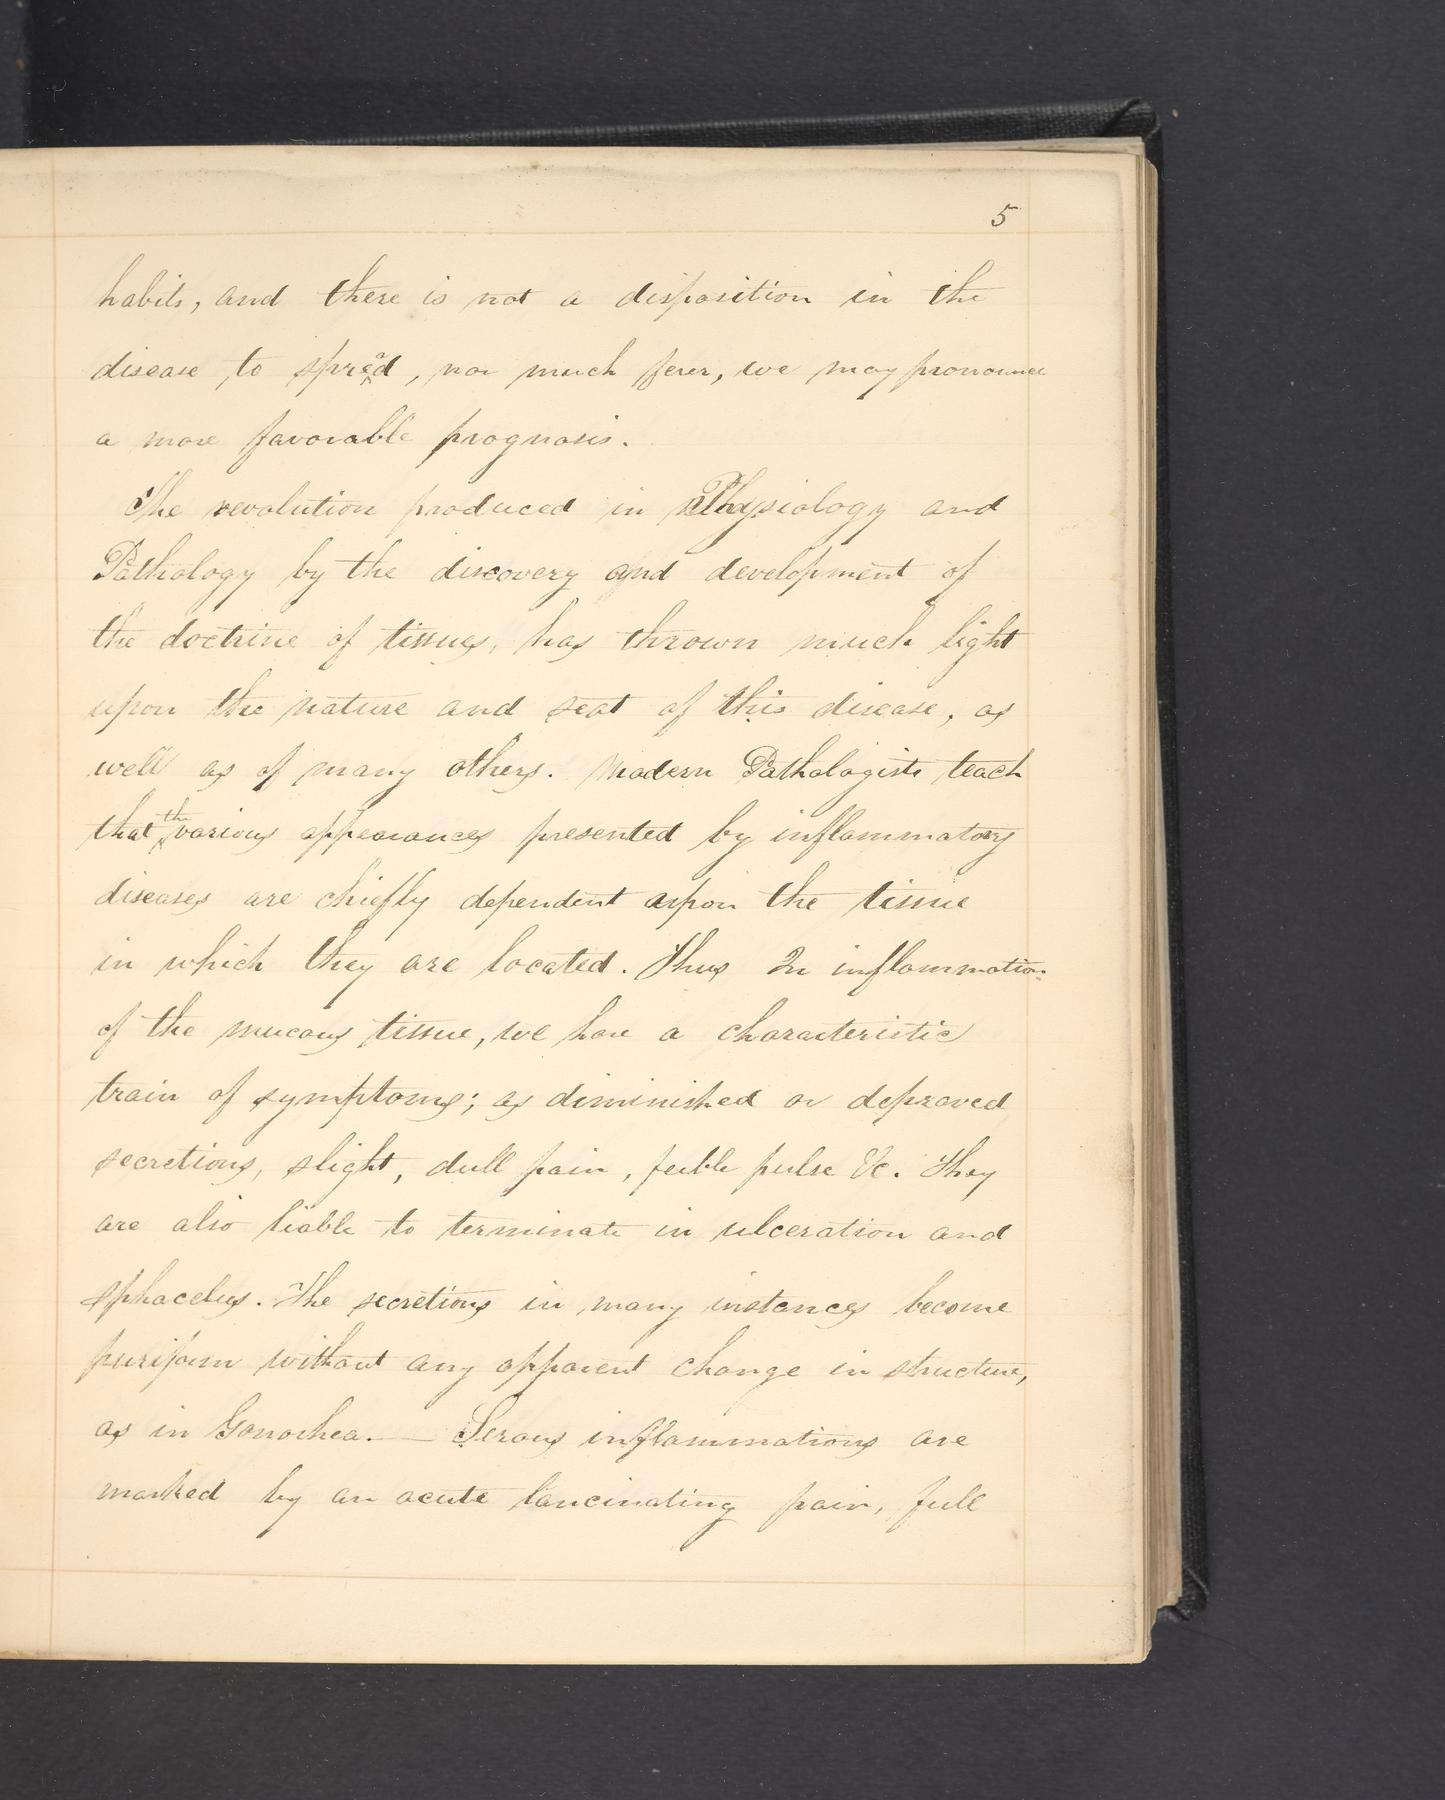 5
habits, and there is not a disposition in the
disease to spread, nor much fever, we may pronounce
a more favorable prognosis.
The revolution produced in Physiology and
Pathology by the discovery and development of
the doctrine of tissues, has thrown much light
upon the nature and seat of this disease, as
well as of many others. Modern Pathologists teach
that the various appearances presented by inflammatory
diseases are chiefly dependent upon the tissue
in which they are located. Thus In inflammation
of the mucous tissue, we have a characteristic
train of symptoms; as diminished or depraved
secretions, slight, dull pain, feeble pulse &c. They
are also liable to terminate in ulceration and
sphacelus. The secretions in many instances become
puriform without any apparent change in structure,
as in Gonorhea. — Serous inflammations are
marked by an acute lancinating pain, full